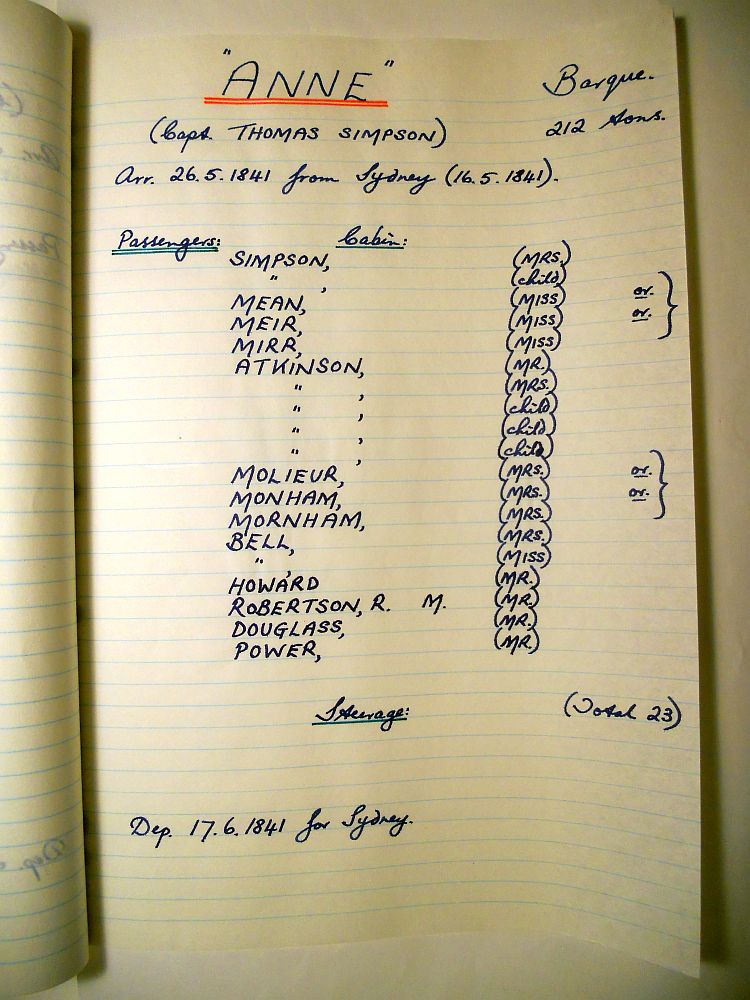 "ANNE" Barque.
(Capt. THOMAS SIMPSON) 212 tons.
Arr. 26.5.1841 from Sydney (16.5.1841).
Passengers: Cabin:
SIMPSON, (MRS.)
" , (child)
MEAN, (MISS) or.
MEIR, (MISS) or.
MIRR, (MISS)
ATKINSON, (MR.)
" , (MRS.)
" , (child)
" , (child)
" , (child)
MOLIEUR, (MRS.) or.
MONHAM, (MRS.) or.
MORNHAM, (MRS.)
BELL, (MRS.)
" , (MISS)
HOWARD (MR.)
ROBERTSON, R. M. (MR.)
DOUGLASS, (MR.)
POWER, (MR.)
Steerage: (Total 23)
Dep. 17.6.1841 for Sydney.